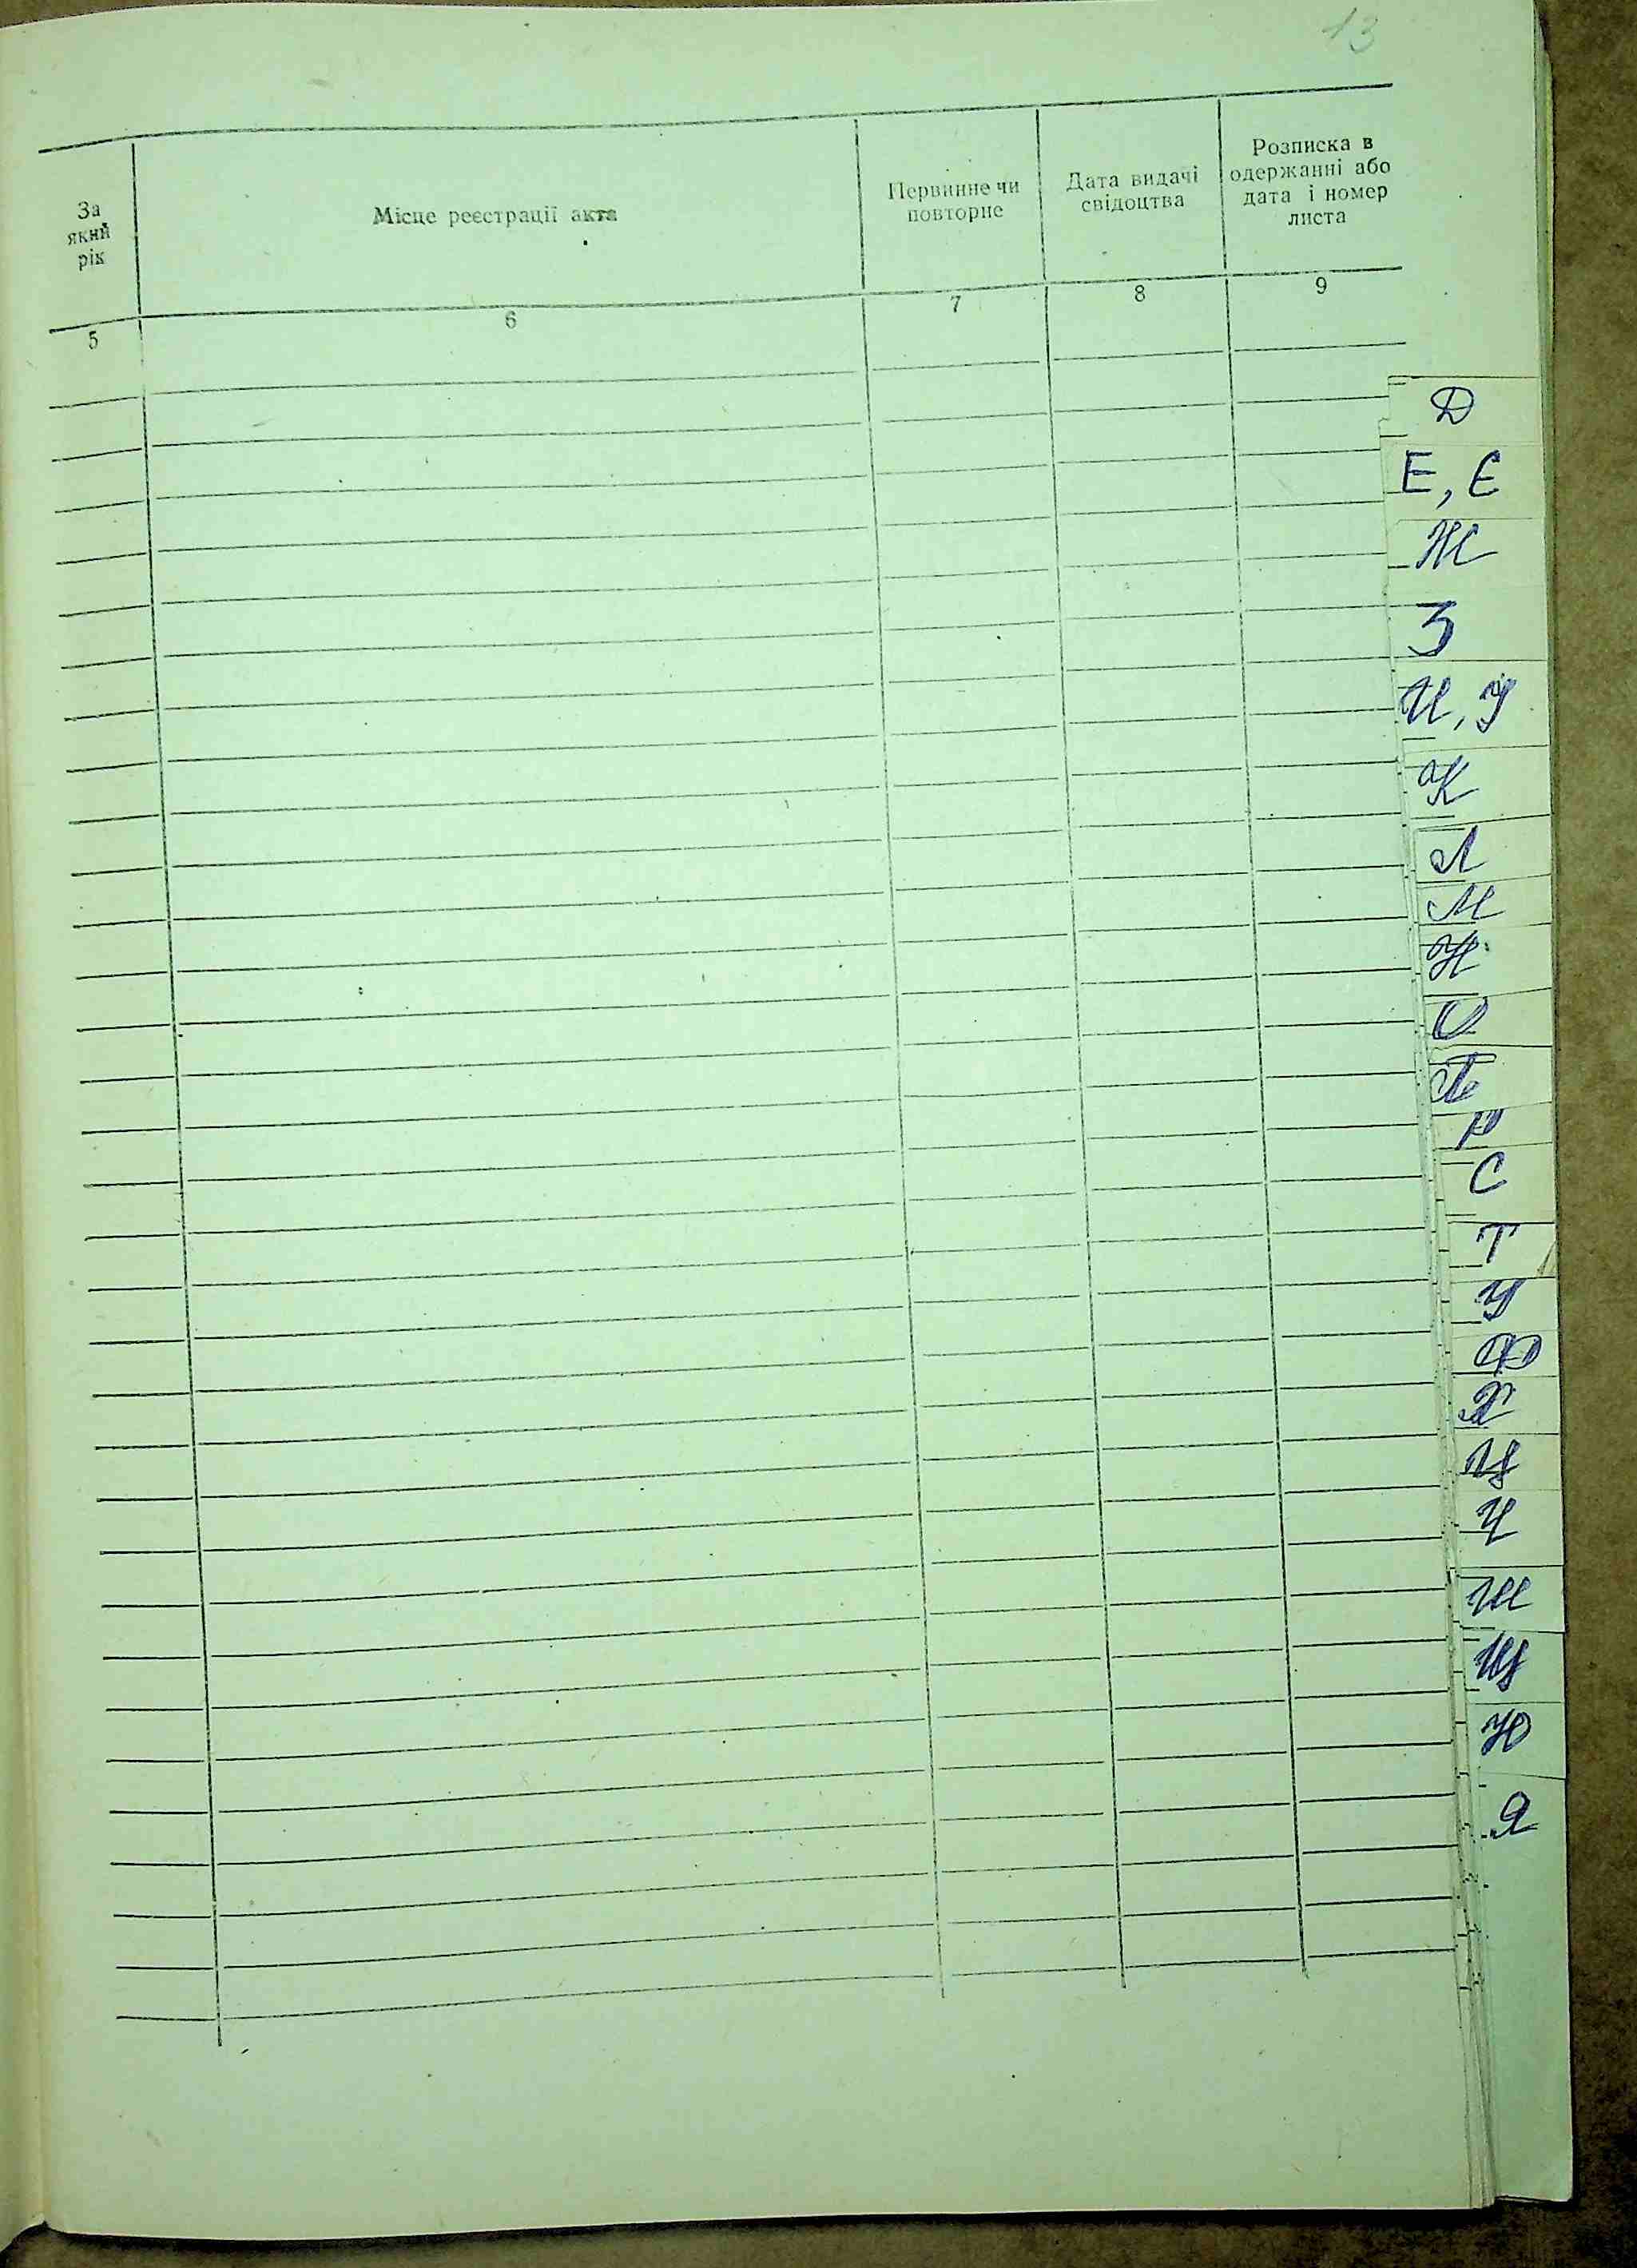 13
За
який
рік
Місце реєстрації акта
Первинне чи
повторне
Дата видачі
свідоцтва
Розписка в
одержанні або
дата і номер
листа
5
6
7
8
9
Д
Е, Є
Ж
З
И, Й
К
Л
М
Н
О
П
Р
С
Т
У
Ф
Х
Ц
Ч
Ш
Щ
Ю
Я